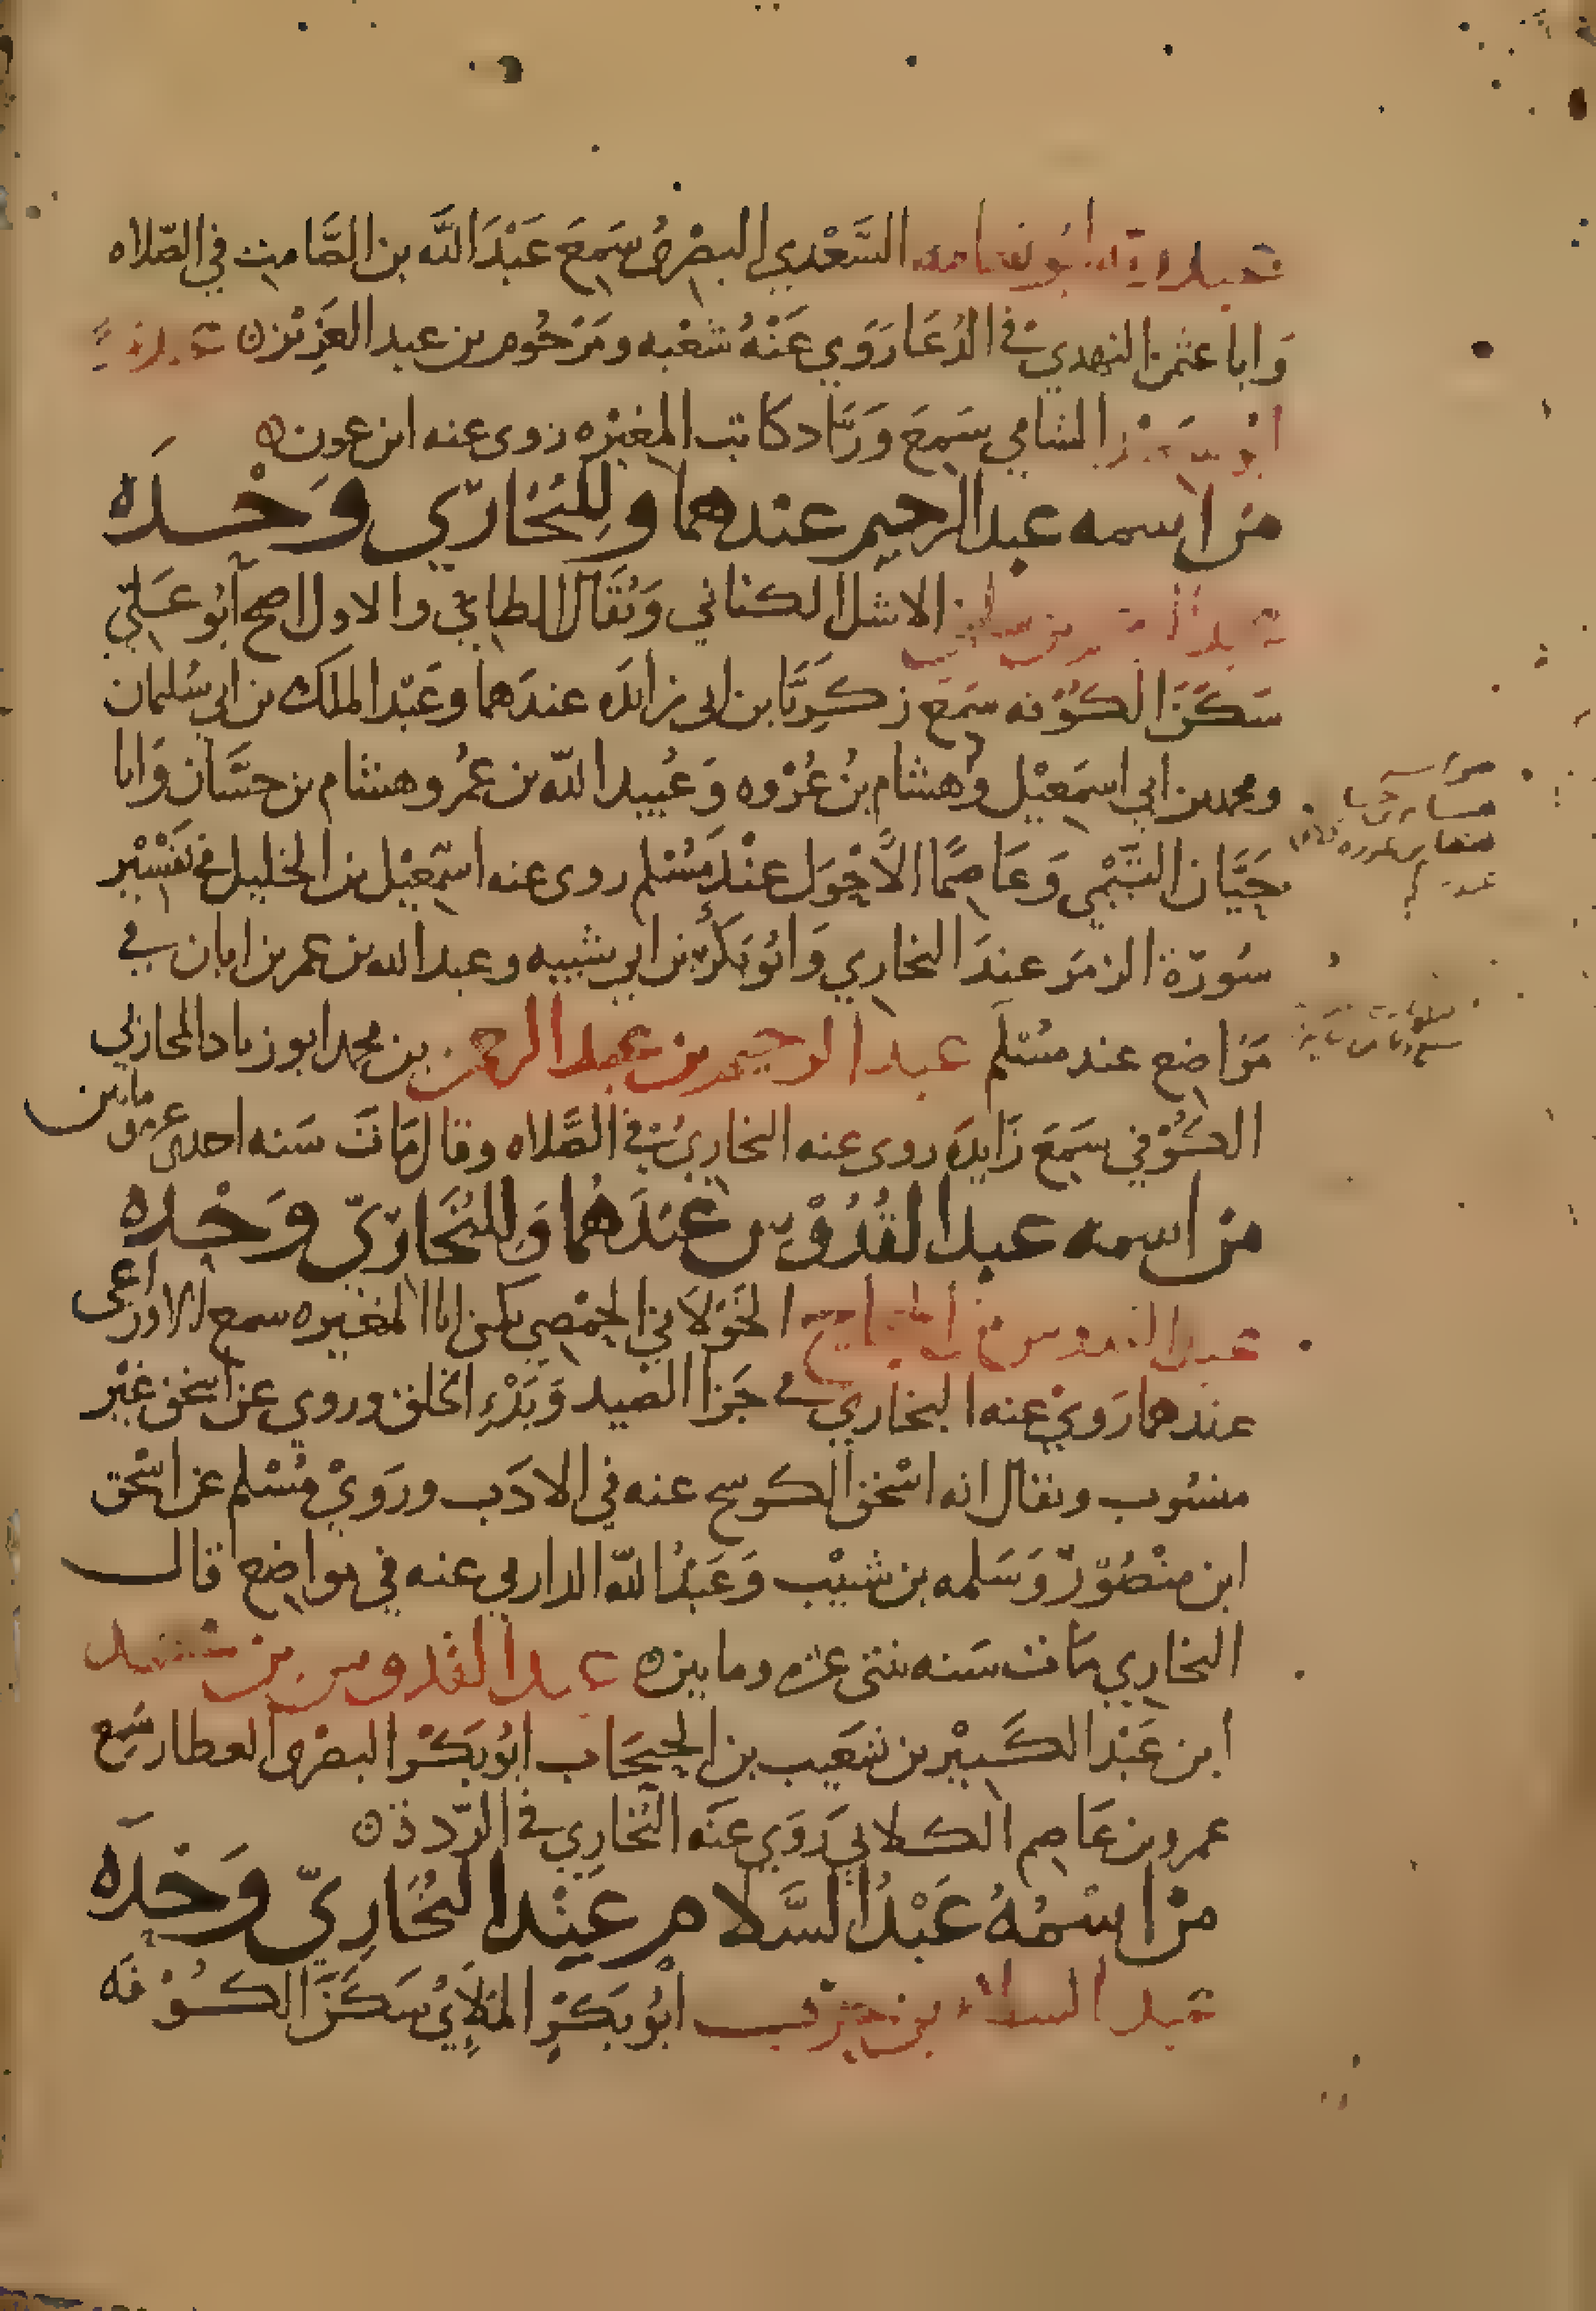 عبد ربه ابو نعامه السَّعْدي البصْرى سَمِعَ عَبْدَ اللَّه بن الصَّامِت في الصّلاه
وَابا عثمن النهدي في الدُعَا رَوَي عَنْهُ شعْبه ومَرْحُوم بن عبد العَزِيْز ه عبد ربه
ابُو سَعِيْد الشامي سَمِعَ وَرَّاد كاتب المغيْره روى عنه ابن عون ه
من اسمه عبد الرحيم عندهما وللبُخَاريّ وَحْدَه
عبد الرحيم بن سليمن الاشل الكناني وَيُقَال الطاءي والاول اصح ابُو عَلِيّ
سَكَنَ الكُوْفه سَمِعَ زكريَّا بن ابى زايدَه عندَهما وعَبْد الملك بن ابي سُليمان
ومحمد بن ابي اسمَعِيْل وهشام بنُ عُرْوه وَعُبيد اللّه بن عُمرُ وهشام بن حسَّان وَابا
حَيَّان التَيْمْي وَعَاصِمًا الاَحْوَل عنْدَ مُسْلم روى عنه اسْمَعِيْل بن الخليل في تفسْيْر
سُورَة الزمَر عندَ البخاري وَابُو بَكْر بن ابي شيبه وعبد الله بن عمر بن ابان في
مَوَاضع عند مسْلم عبد الرحيم بن عبد الرحمن بن محمد ابو زياد المحاربي
الكُوْفي سَمِعَ زَايدَه روى عنه البخاريُ في الصَّلاه وقال مَاتَ سَنه احدى عشره وماىتين
من اسمه عبد القُدُوْس عنْدَهُمَا وَللبُخَاريّ وَحْدَه
عبد القدوس بن الحجاج الخَوْلاَني الحِمْصِي يكنى ابا المغيره سمع الاوزاعي
عندهما رَوَيْ عنه البخاريّ في جَزا الصَيد وَبَدْءِ الخلق وروى عن اسحق غيْر
منسُوب ويقال انه اسْحق الكوسج عنه في الادَب ورَوَيْ مُسْلم عن اسْحق
ابن منْصُوْر وَسَلمه بن شبيْب وَعَبْدُ اللّه الدارمي عنه في مواضع قال
البخاري مَات سَنه ثنتى عشره ومايتين ه عبد القدوس بن محمد
ابن عَبْد الكَبيْر بن شعَيب بن الحبحَاب ابُو بَكْر البصْرى العطار سَمِع
عمرو بن عَاصِم الكلابي رَوَي عَنْه البُخَاري في الرّدّه ه
من اسْمُهُ عَبْدُ السَّلَام عنْد البُخَارِيّ وَحْدَه
عبد السلام بن حَرْب ابُو بَكْر المَلاَءِيُ سَكَنَ الكُوْفَه